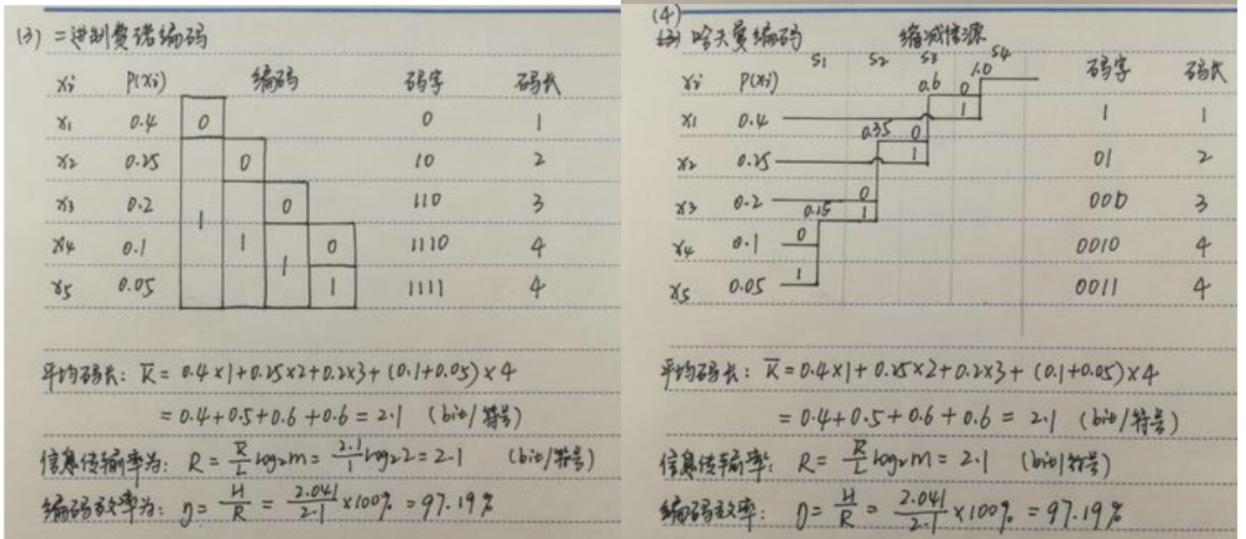 (3) 二进制费诺编码
xi P(xi) 编码 码字 码长
x1 0.4 0 0 1
x2 0.25 0 10 2
x3 0.2 1 0 110 3
x4 0.1 1 1 0 1110 4
x5 0.05 1 1111 4
平均码长: K̅ = 0.4×1+0.25×2+0.2×3+(0.1+0.05)×4
= 0.4+0.5+0.6+0.6 = 2.1 (bit/符号)
信息传输率为: R = K̅/L log₂m = 2.1/1 log₂2 = 2.1 (bit/符号)
编码效率为: η = H/R = 2.041/2.1 ×100% = 97.19%
(4)
哈夫曼编码 缩减信源
S1 S2 S3 S4
xi P(xi) 0.6 0 1.0 码字 码长
x1 0.4 1 1 1
0.35 0
x2 0.25 1 01 2
x3 0.2 0 000 3
0.15 1
x4 0.1 0 0010 4
x5 0.05 1 0011 4
平均码长: K̅ = 0.4×1+0.25×2+0.2×3+(0.1+0.05)×4
= 0.4+0.5+0.6+0.6 = 2.1 (bit/符号)
信息传输率: R = K̅/L log₂m = 2.1 (bit/符号)
编码效率: η = H/R = 2.041/2.1 ×100% = 97.19%